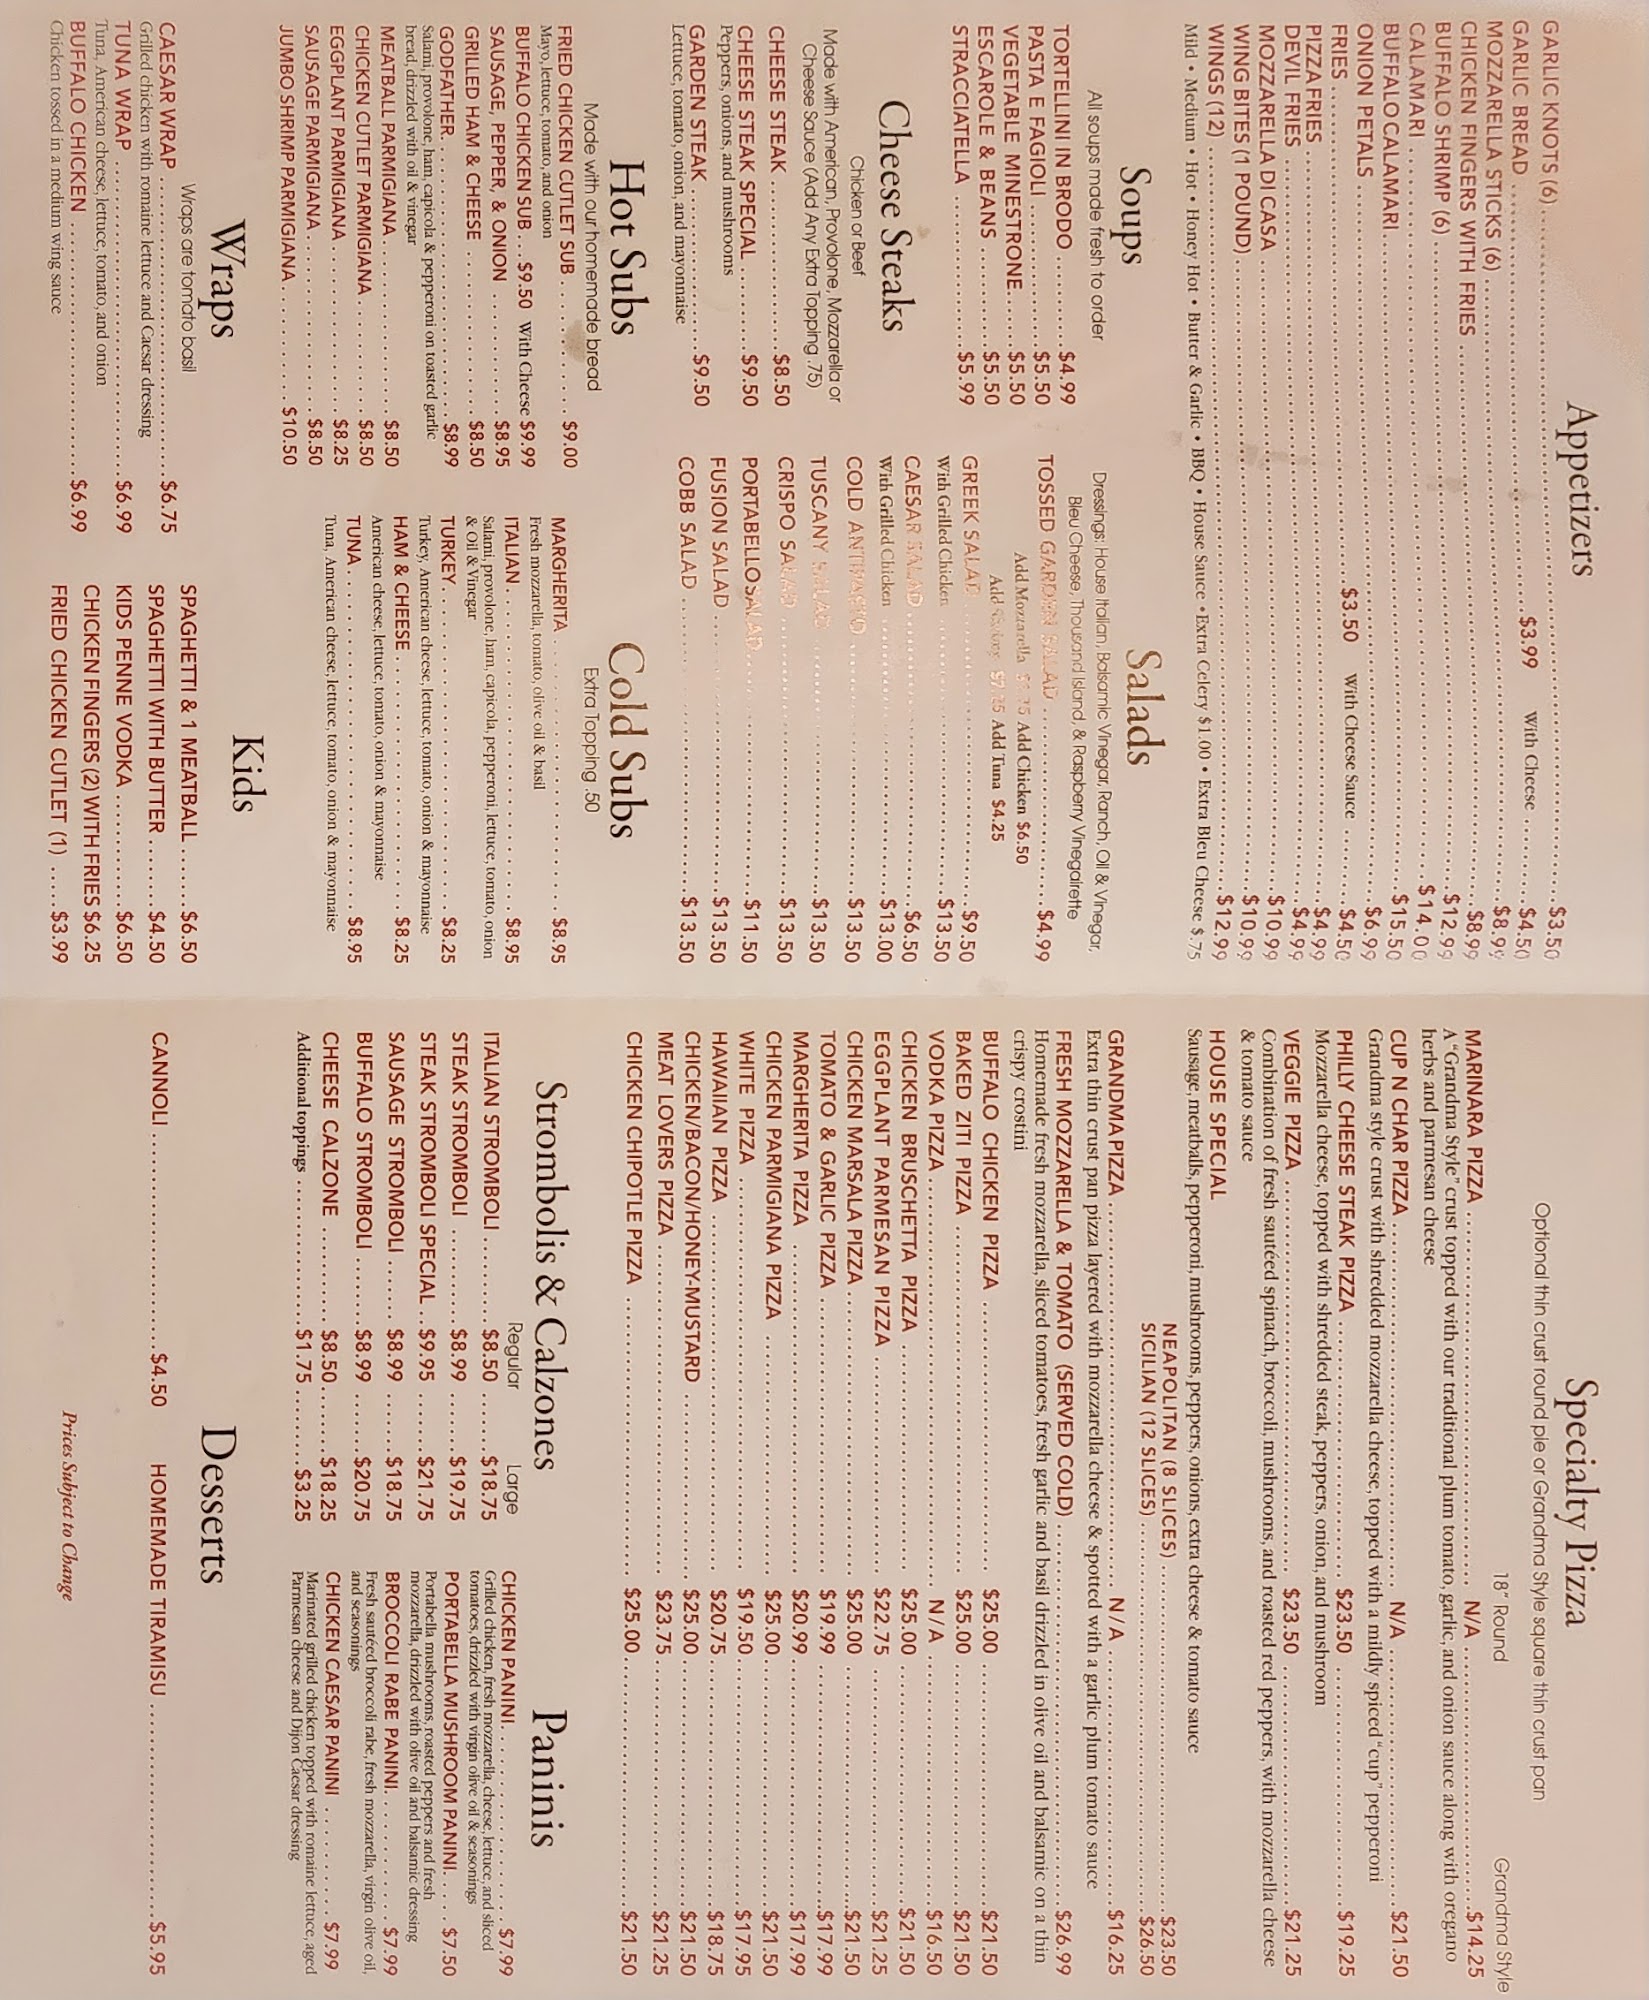 Appetizers
GARLIC KNOTS (6) $3.50
GARLIC BREAD $3.99 With Cheese $4.50
MOZZARELLA STICKS (6) $8.99
CHICKEN FINGERS WITH FRIES $8.99
BUFFALO SHRIMP (6) $12.99
CALAMARI $14.00
BUFFALO CALAMARI $15.50
ONION PETALS $6.99
FRIES $3.50 With Cheese Sauce $4.50
PIZZA FRIES $4.99
DEVIL FRIES $4.99
MOZZARELLA DI CASA $10.99
WING BITES (1 POUND) $10.99
WINGS (12) $12.99
Mild • Medium • Hot • Honey Hot • Butter & Garlic • BBQ • House Sauce •Extra Celery $1.00 • Extra Bleu Cheese $.75
Soups
All soups made fresh to order
TORTELLINI IN BRODO $4.99
PASTA E FAGIOLI $5.50
VEGETABLE MINESTRONE $5.50
ESCAROLE & BEANS $5.50
STRACCIATELLA $5.99
Cheese Steaks
Chicken or Beef
Made with American, Provolone, Mozzarella or
Cheese Sauce (Add Any Extra Topping .75)
CHEESE STEAK $8.50
CHEESE STEAK SPECIAL $9.50
Peppers, onions, and mushrooms
GARDEN STEAK $9.50
Lettuce, tomato, onion, and mayonnaise
Salads
Dressings: House Italian, Balsamic Vinegar, Ranch, Oil & Vinegar,
Bleu Cheese, Thousand Island, & Raspberry Vinegairette
TOSSED GARDEN SALAD $4.99
Add Mozzarella Add Chicken $6.50
Add Add Tuna $4.25
GREEK SALAD $9.50
With Grilled Chicken $13.50
CAESAR SALAD $6.50
With Grilled Chicken $13.00
COLD ANTIPASTO $13.50
TUSCANY SALAD $13.50
CRISPO SALAD $13.50
PORTABELLO SALAD $11.50
FUSION SALAD $13.50
COBB SALAD $13.50
Hot Subs
Made with our homemade bread
FRIED CHICKEN CUTLET SUB $9.00
Mayo, lettuce, tomato, and onion
BUFFALO CHICKEN SUB $9.50 With Cheese $9.99
SAUSAGE, PEPPER, & ONION $8.95
GRILLED HAM & CHEESE $8.50
GODFATHER $8.99
Salami, provolone, ham, capicola & pepperoni on toasted garlic
bread, drizzled with oil & vinegar
MEATBALL PARMIGIANA $8.50
CHICKEN CUTLET PARMIGIANA $8.50
EGGPLANT PARMIGIANA $8.25
SAUSAGE PARMIGIANA $8.50
JUMBO SHRIMP PARMIGIANA $10.50
Cold Subs
Extra Topping .50
MARGHERITA $8.95
Fresh mozzarella, tomato, olive oil & basil
ITALIAN $8.95
Salami, provolone, ham, capicola, pepperoni, lettuce, tomato, onion
& Oil & Vinegar
TURKEY $8.25
Turkey, American cheese, lettuce, tomato, onion & mayonnaise
HAM & CHEESE $8.25
American cheese, lettuce, tomato, onion & mayonnaise
TUNA $8.95
Tuna, American cheese, lettuce, tomato, onion & mayonnaise
Wraps
Wraps are tomato basil
CAESAR WRAP $6.75
Grilled chicken with romaine lettuce and Caesar dressing
TUNA WRAP $6.99
Tuna, American cheese, lettuce, tomato, and onion
BUFFALO CHICKEN $6.99
Chicken tossed in a medium wing sauce
Kids
SPAGHETTI & 1 MEATBALL $6.50
SPAGHETTI WITH BUTTER $4.50
KIDS PENNE VODKA $6.50
CHICKEN FINGERS (2) WITH FRIES $6.25
FRIED CHICKEN CUTLET (1) $3.99
Specialty Pizza
Optional thin crust round pie or Grandma Style square thin crust pan
18" Round Grandma Style
MARINARA PIZZA N/A $14.25
A "Grandma Style" crust topped with our traditional plum tomato, garlic, and onion sauce along with oregano
herbs and parmesan cheese
CUP N CHAR PIZZA N/A $21.50
Grandma style crust with shredded mozzarella cheese, topped with a mildly spiced "cup" pepperoni
PHILLY CHEESE STEAK PIZZA $23.50 $19.25
Mozzarella cheese, topped with shredded steak, peppers, onion, and mushroom
VEGGIE PIZZA $23.50 $21.25
Combination of fresh sautéed spinach, broccoli, mushrooms, and roasted red peppers, with mozzarella cheese
& tomato sauce
HOUSE SPECIAL
Sausage, meatballs, pepperoni, mushrooms, peppers, onions, extra cheese & tomato sauce
NEAPOLITAN (8 SLICES) $23.50
SICILIAN (12 SLICES) $26.50
GRANDMA PIZZA N/A $16.25
Extra thin crust pan pizza layered with mozzarella cheese & spotted with a garlic plum tomato sauce
FRESH MOZZARELLA & TOMATO (SERVED COLD) $26.99
Homemade fresh mozzarella, sliced tomatoes, fresh garlic and basil drizzled in olive oil and balsamic on a thin
crispy crostini
BUFFALO CHICKEN PIZZA $25.00 $21.50
BAKED ZITI PIZZA $25.00 $21.50
VODKA PIZZA N/A $16.50
CHICKEN BRUSCHETTA PIZZA $25.00 $21.50
EGGPLANT PARMESAN PIZZA $22.75 $21.25
CHICKEN MARSALA PIZZA $25.00 $21.50
TOMATO & GARLIC PIZZA $19.99 $17.99
MARGHERITA PIZZA $20.99 $17.99
CHICKEN PARMIGIANA PIZZA $25.00 $21.50
WHITE PIZZA $19.50 $17.95
HAWAIIAN PIZZA $20.75 $18.75
CHICKEN/BACON/HONEY-MUSTARD $25.00 $21.50
MEAT LOVERS PIZZA $23.75 $21.25
CHICKEN CHIPOTLE PIZZA $25.00 $21.50
Strombolis & Calzones
Regular Large
ITALIAN STROMBOLI $8.50 $18.75
STEAK STROMBOLI $8.99 $19.75
STEAK STROMBOLI SPECIAL $9.95 $21.75
SAUSAGE STROMBOLI $8.99 $18.75
BUFFALO STROMBOLI $8.99 $20.75
CHEESE CALZONE $8.50 $18.25
Additional toppings $1.75 $3.25
Paninis
CHICKEN PANINI $7.99
Grilled chicken, fresh mozzarella, cheese, lettuce, and sliced
tomatoes, drizzled with virgin olive oil & seasonings
PORTABELLA MUSHROOM PANINI $7.50
Portabella mushrooms, roasted peppers and fresh
mozzarella, drizzled with olive oil and balsamic dressing
BROCCOLI RABE PANINI $7.99
Fresh sautéed broccoli rabe, fresh mozzarella, virgin olive oil,
and seasonings
CHICKEN CAESAR PANINI $7.99
Marinated grilled chicken topped with romaine lettuce, aged
Parmesan cheese and Dijon Caesar dressing
Desserts
CANNOLI $4.50 HOMEMADE TIRAMISU $5.95
Prices Subject to Change